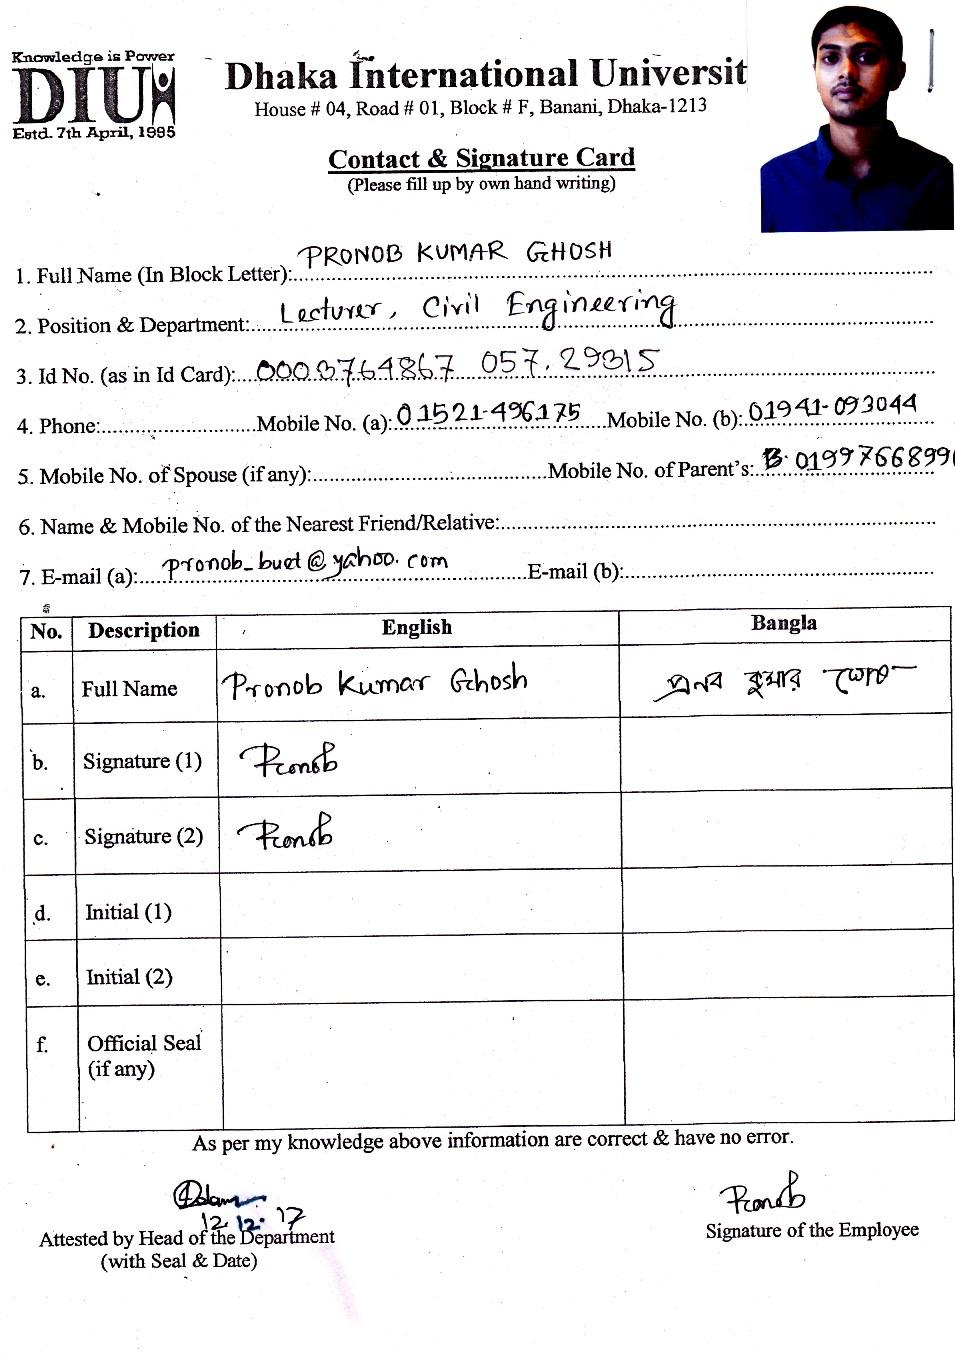 Knowledge is Power
DIU
Estd. 7th April, 1995
Dhaka International Universit
House # 04, Road # 01, Block # F, Banani, Dhaka-1213
Contact & Signature Card
(Please fill up by own hand writing)
1. Full Name (In Block Letter): PRONOB KUMAR GHOSH
2. Position & Department: Lecturer, Civil Engineering
3. Id No. (as in Id Card): 0003764867 057.29315
4. Phone: Mobile No. (a): 01521-496175 Mobile No. (b): 01941-093044
5. Mobile No. of Spouse (if any): Mobile No. of Parent's: 0199766899
6. Name & Mobile No. of the Nearest Friend/Relative:
7. E-mail (a): pronob_buet@yahoo.com E-mail (b):
No. Description English Bangla
a. Full Name Pronob Kumar Ghosh প্রনব কুমার ঘোষ
b. Signature (1) Pronob
c. Signature (2) Pronob
d. Initial (1)
e. Initial (2)
f. Official Seal
(if any)
As per my knowledge above information are correct & have no error.
12.12.17 Pronob
Attested by Head of the Department Signature of the Employee
(with Seal & Date)